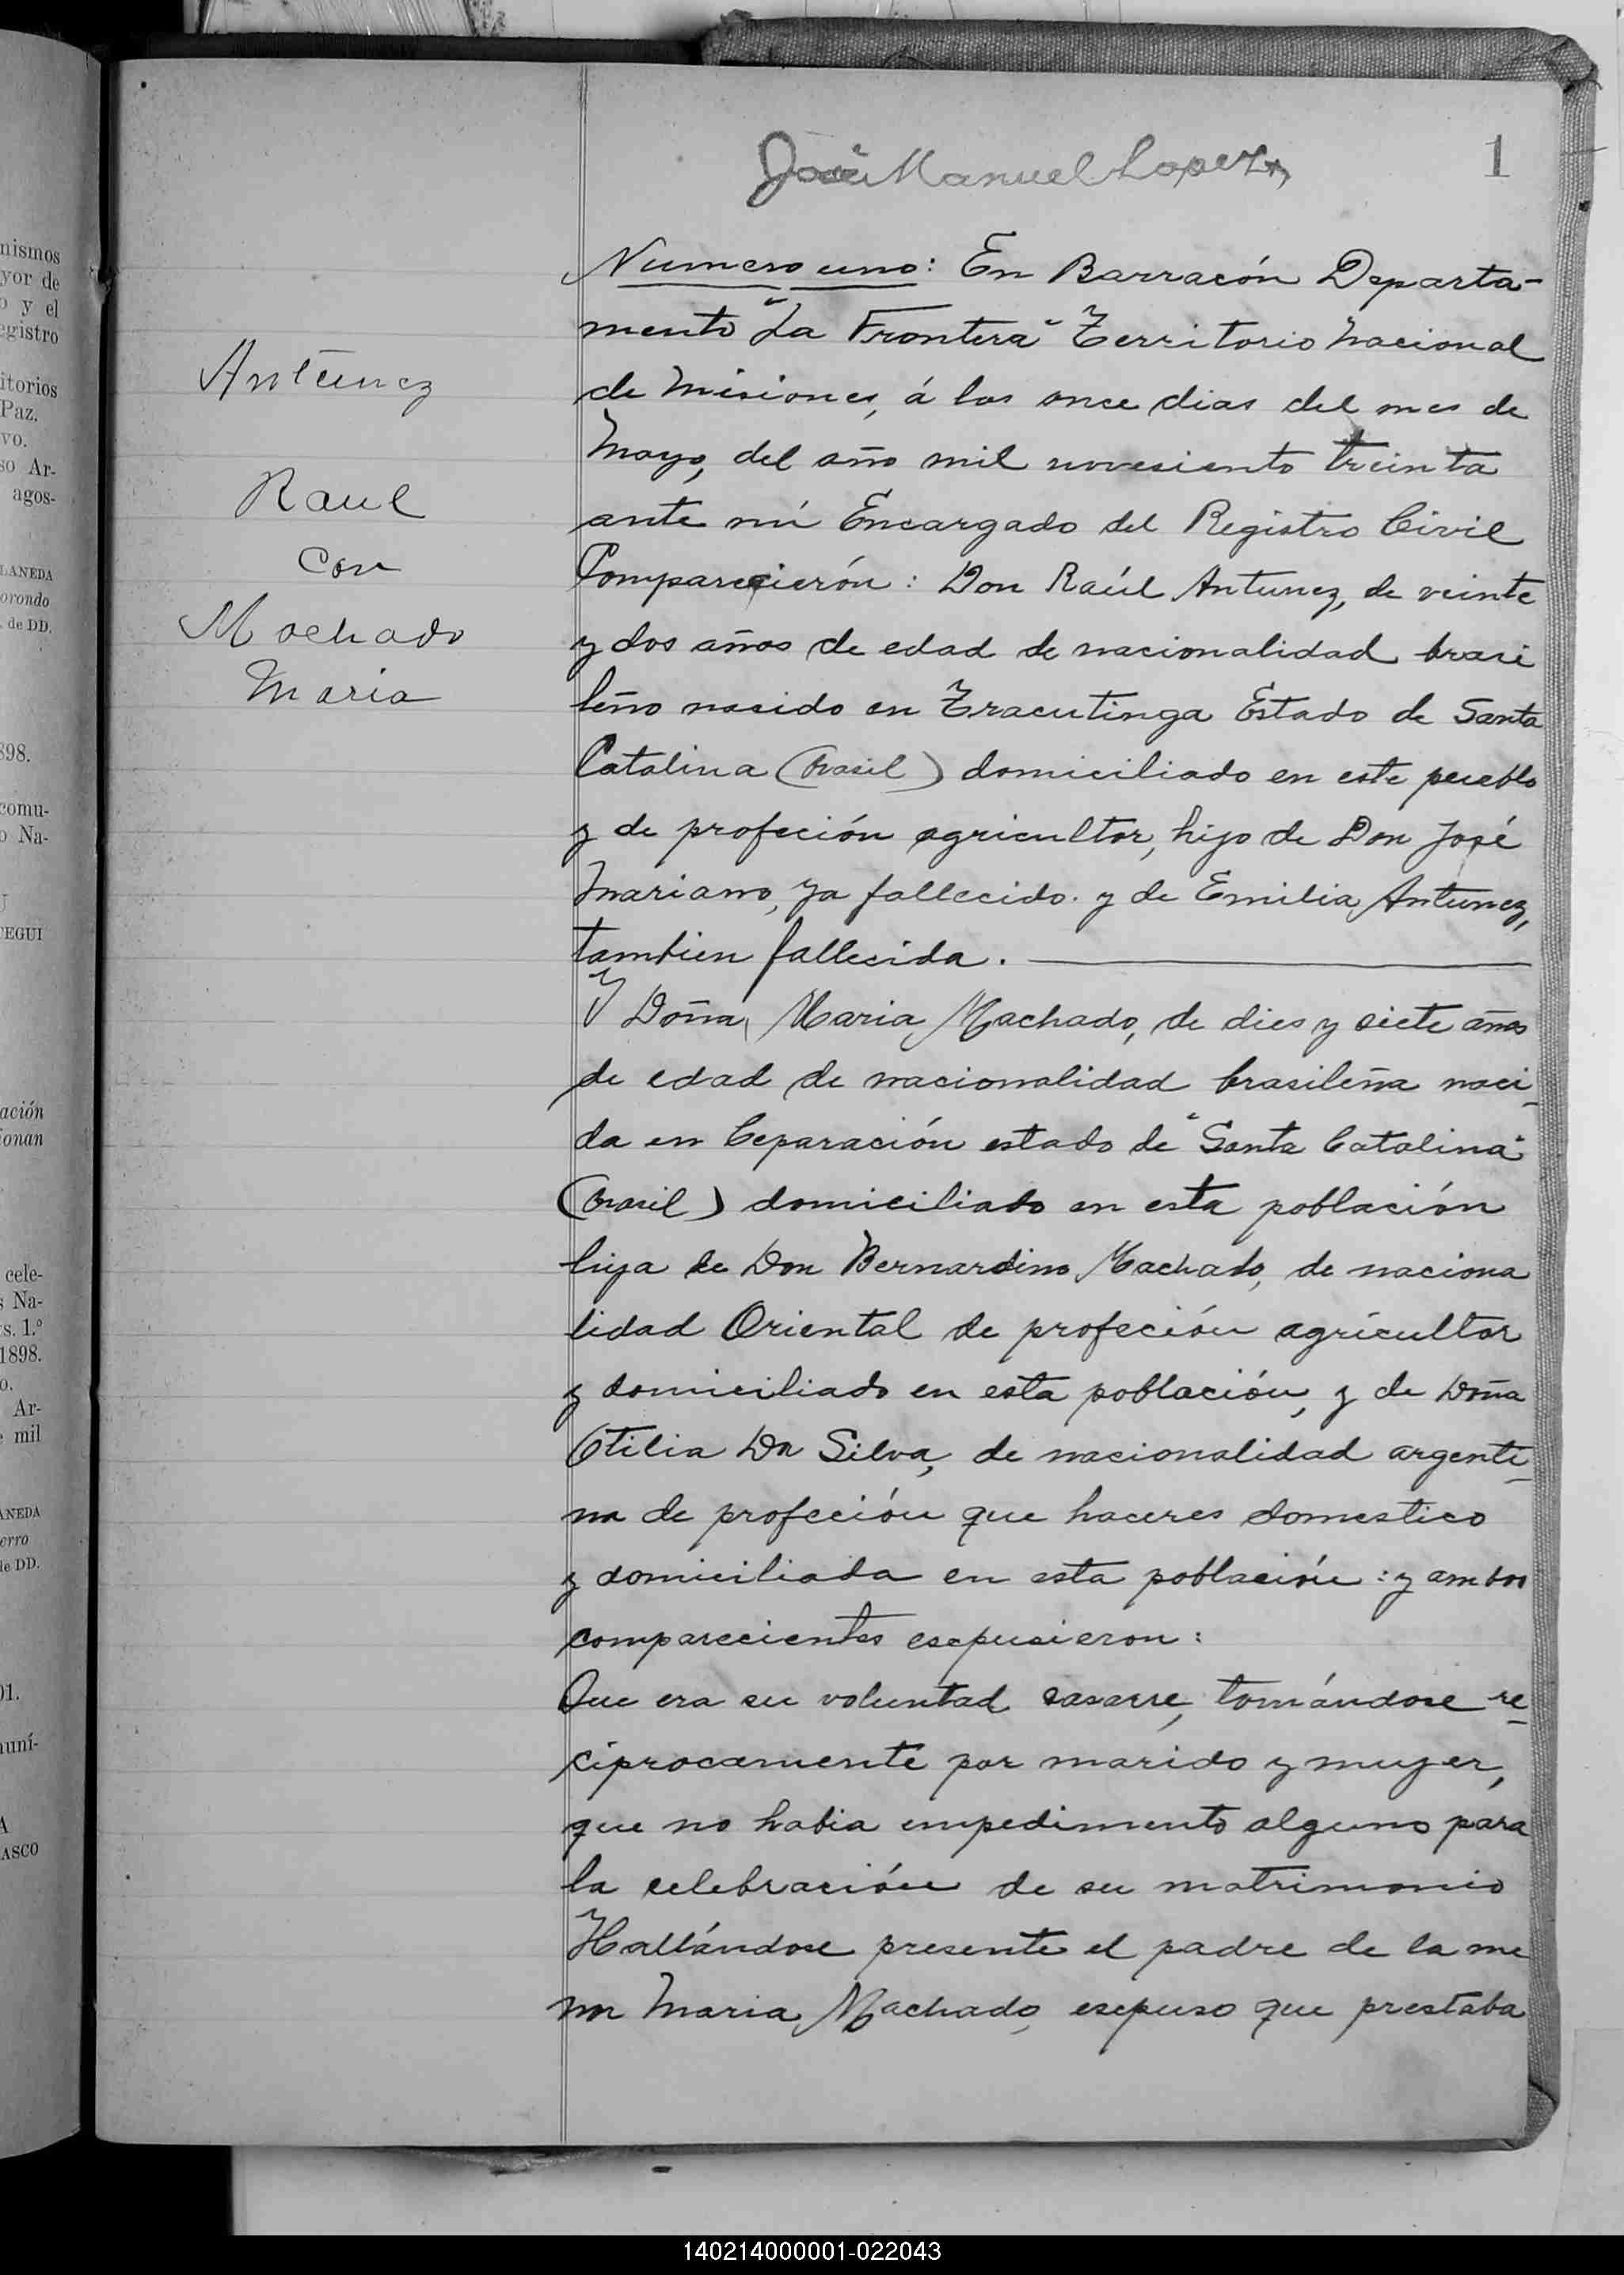 José Manuel Lopez
1
Antúnez
Raul
con
Machado
Maria
Numero uno: En Barracón Departa-
mento "La Frontera" Territorio Nacional
de Misiones, á los once dias del mes de
Mayo, del año mil novesiento treinta
ante mí Encargado del Registro Civil
Comparecierón: Don Raúl Antunez, de veinte
y dos años de edad de nacionalidad brasi
leño nacido en Tracutinga Estado de Santa
Catalina (Brasil) domiciliado en este pueblo
y de profeción agricultor, hijo de Don José
Mariano, ya fallecido. y de Emilia Antunez,
tambien fallecida.
Y Doña Maria Machado, de dies y siete años
de edad de nacionalidad brasileña naci-
da en Ceparación estado de "Santa Catalina"
(Brasil) domiciliado en esta población
hija de Don Bernardino Machado, de naciona
lidad Oriental de profeción agricultor
y domiciliado en esta población, y de Doña
Otilia Da Silva, de nacionalidad argenti-
na de profeción que haceres domestico
y domiciliada en esta población: y ambos
comparecientes esepusieron:
Que era su voluntad casarse, tomándose re-
ciprocamente por marido y mujer,
que no habia empedimento alguno para
la celebración de su matrimonio
Hallándose presente el padre de la me
nor Maria Machado, esepuso que prestaba
nismos
yor de
o y el
egistro
itorios
Paz.
vo.
so Ar-
agos-
LANEDA
orondo
de DD.
898.
comu-
o Na-
TEGUI
ación
ionan
cele-
s Na-
s. 1.º
1898.
o.
Ar-
e mil
ANEDA
erro
de DD.
01.
uní-
A
ASCO
140214000001-022043